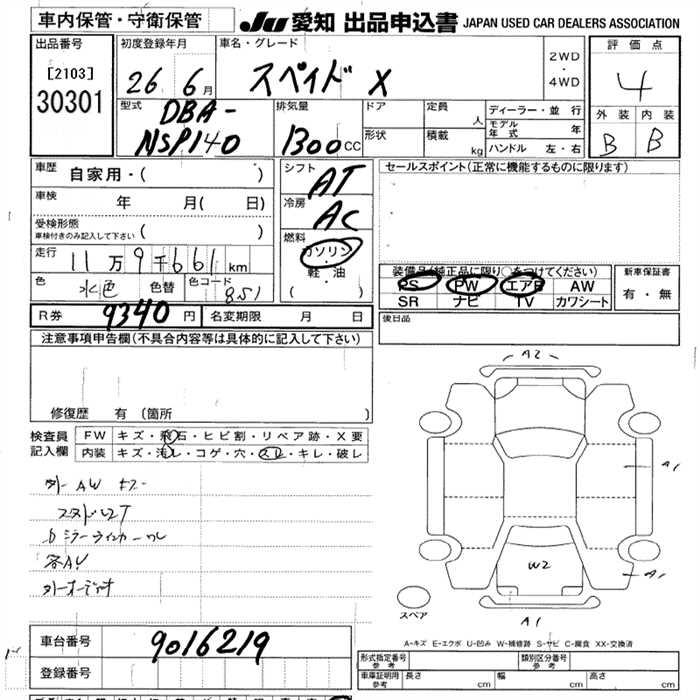 車内保管・守衛保管 JU 愛知 出品申込書 JAPAN USED CAR DEALERS ASSOCIATION
出品番号 初度登録年月 車名・グレード 2WD・4WD 評価点
[2103]
30301
26年 6月 スペイド X 4
型式 排気量 ドア 定員 人 ディーラー・並行 外装 内装
DBA-
NSP140 1300cc 形状 積載 kg モデル年式 年 B B
ハンドル 左・右
車歴 自家用・( ) シフト AT セールスポイント(正常に機能するものに限ります)
車検 年 月( 日) 冷房 AC
受検形態
車検付きのみ記入して下さい ( ) 燃料
ガソリン・軽・油
( )
走行 11万9千661km
装備品(純正品に限り○をつけてください) 新車保証書
色 水色 色替 色コード 8S1 PS PW エアB AW 有・無
SR ナビ TV カワシート
R券 9340円 名変期限 月 日 後日品
注意事項申告欄(不具合内容等は具体的に記入して下さい)
修復歴 有 (箇所 )
検査員記入欄 FW キズ・飛石・ヒビ割・リペア跡・X要
内装 キズ・汚レ・コゲ・穴・スレ・キレ・破レ
外AW キズ
外オーディオ
A2
A1
A1
W2
A1
スペア
A-キズ E-エクボ U-凹み W-補修跡 S-サビ C-腐食 XX-交換済
車台番号 9016219
登録番号
形式指定番号 参考 類別区分番号 参考
車庫証明用 参考 長さ cm 幅 cm 高さ cm